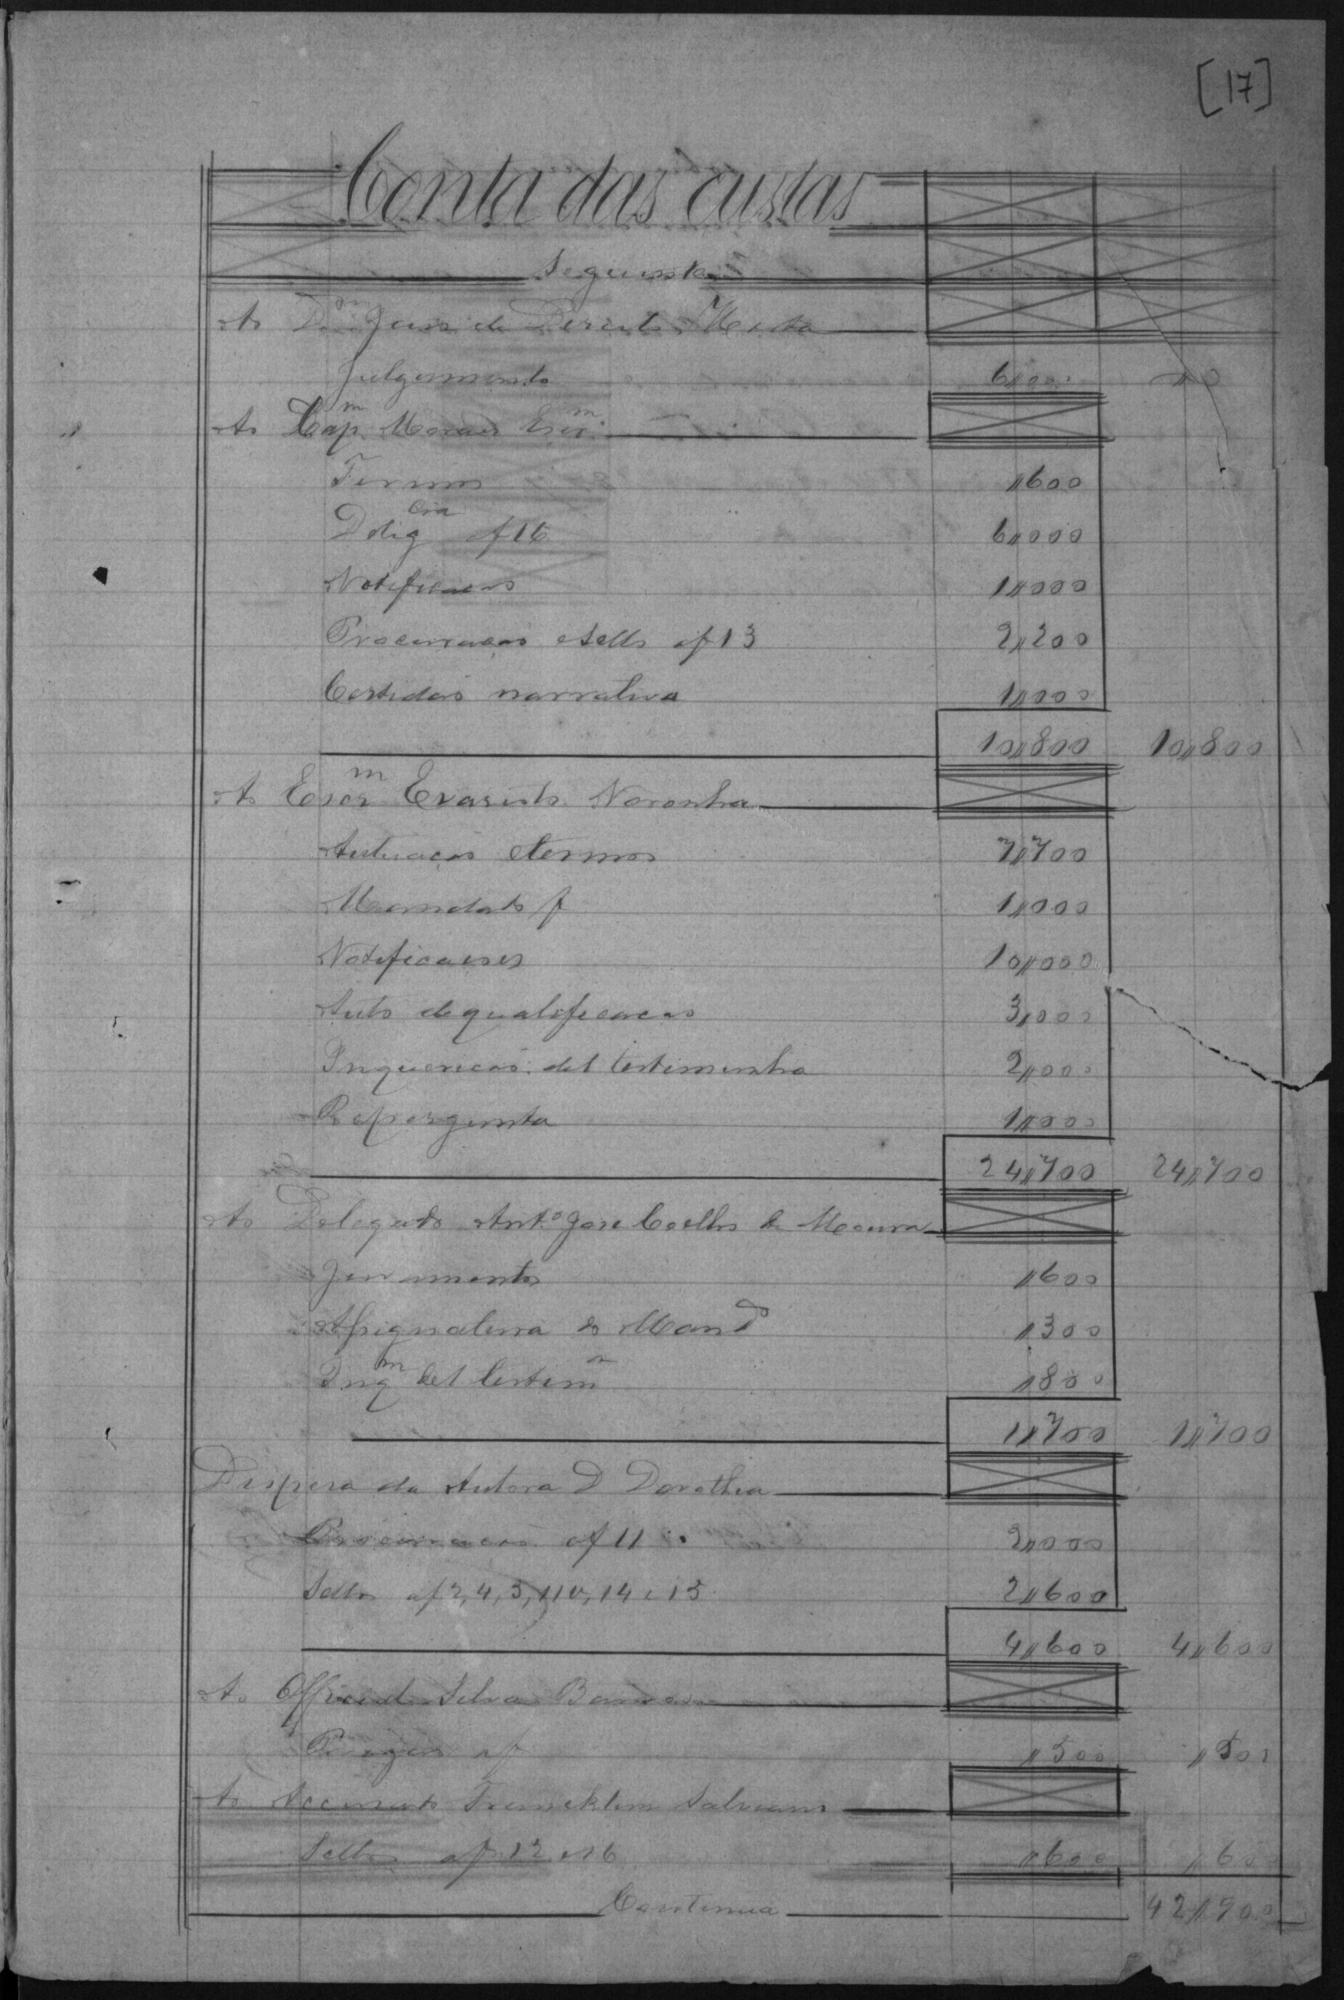 [17]
Conta das custas
Seguinte
Ao Dr. Juiz de Direito Motta
Julgamento 6,,000
Ao Cap.m Moraes Escr.m
Termos ,,600
Delig.cia af 16 6,,000
Notificacao 1,,000
Procuracao e Sello af 13 2,,200
Certidão narrativa 1,,000
10,,800 10,,800
Ao Escr.m Evaristo Noronha
Autuacao e termos 7,,700
Mandato f 1,,000
Notificacoes 10,,000
Auto de qualificacao 3,,000
Inquericão de 1 testimunha 2,,000
Repergunta 1,,000
24,,700 24,,700
Ao Delegado Ant.o José Coelho de Moura
Juramento ,,600
Assignatura do Mand.o ,,300
Inq.m de 1 testem.a ,,800
1,,700 1,,700
Despesa da Autora D Dorothea
Procuracão af 11 2,,000
Sellos af 2, 4, 5, 11 v, 14 e 15 2,,600
4,,600 4,,600
Ao Official Silva
af ,,500 ,,500
Ao Accusado Francklim
Sello af 12 e 16 ,,600 ,,600
Continua 42,,900